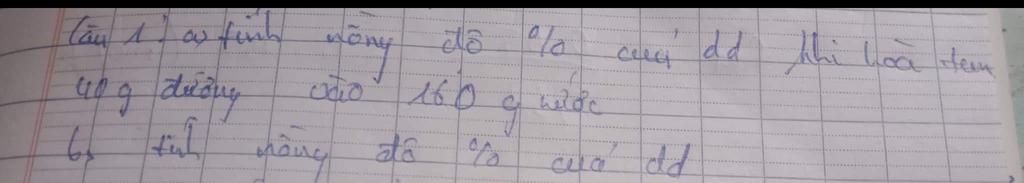 Câu 1: a) tính nồng độ % của dd khi hoà tan
40 g đường vào 160 g nước
b) tính nồng độ % của dd